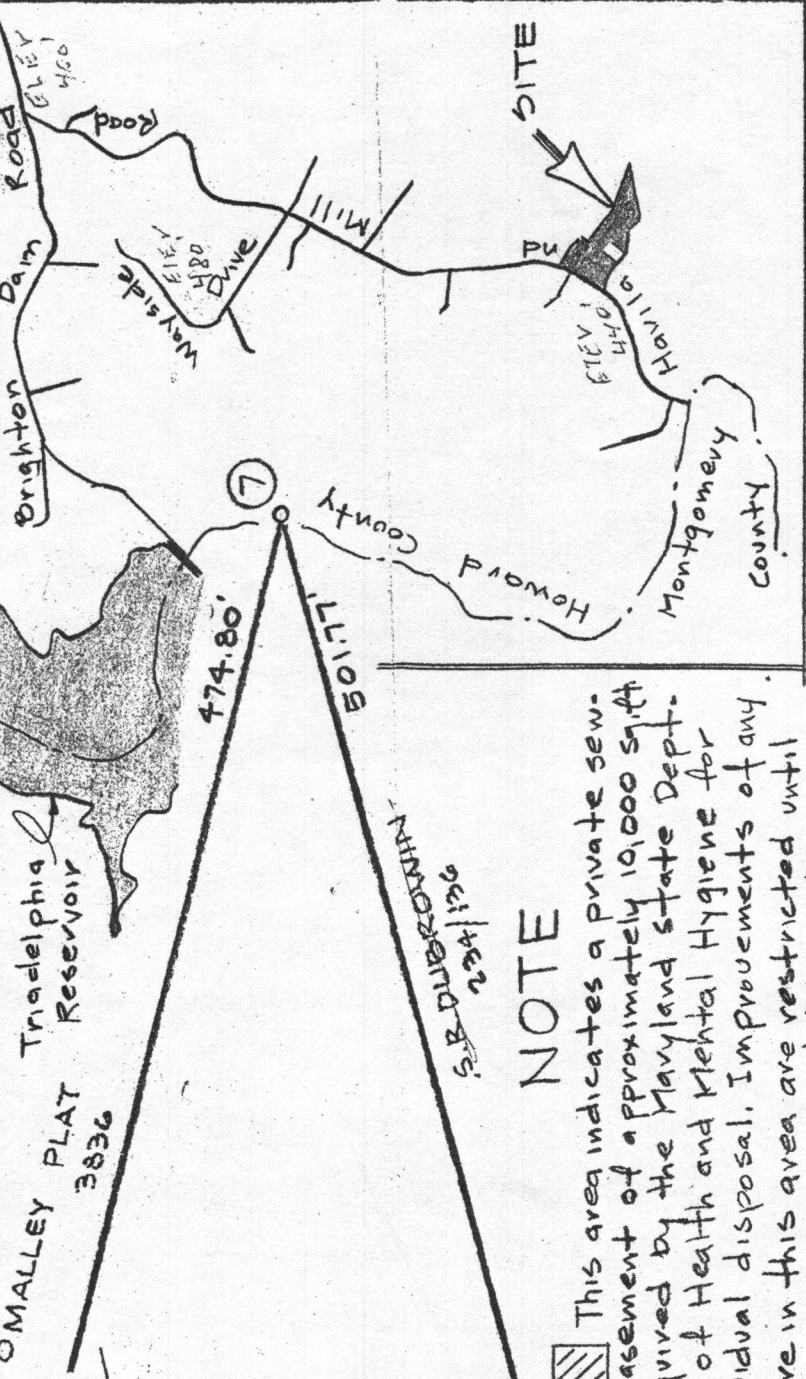 O'MALLEY PLAT
3836
Triadelphia
Reservoir
474.80'
501.77'
7
S.B. DUBROWIN
234/136
Brighton Dam Road
ELEV
460'
Road
Wayside Drive
ELEV
480
Mill
Havila
nd
ELEV
440'
SITE
Howard County
Montgomery
County
NOTE
This area indicates a private sew-
asement of approximately 10,000 sq.ft.
uired by the Maryland State Dept.
of Health and Mental Hygiene for
idual disposal. Improvements of any
re in this area are restricted until